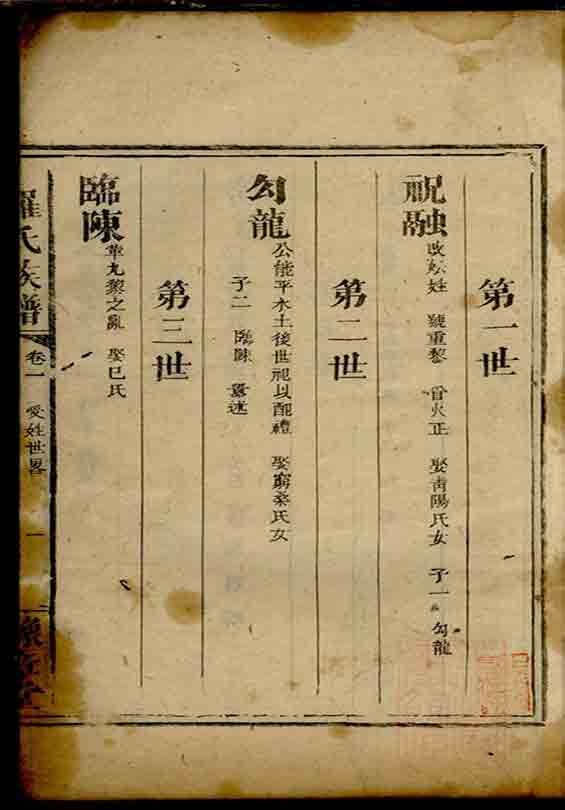 第一世
祝融 改妘姓 號重黎 曾火正 娶青陽氏女 子一 勾龍
第二世
勾龍 公能平水土後世祀以配禮 娶窮桑氏女
子二 臨陳 噐述
第三世
臨陳 革九黎之亂 娶巳氏
羅氏族譜 卷一 受姓世畧 一